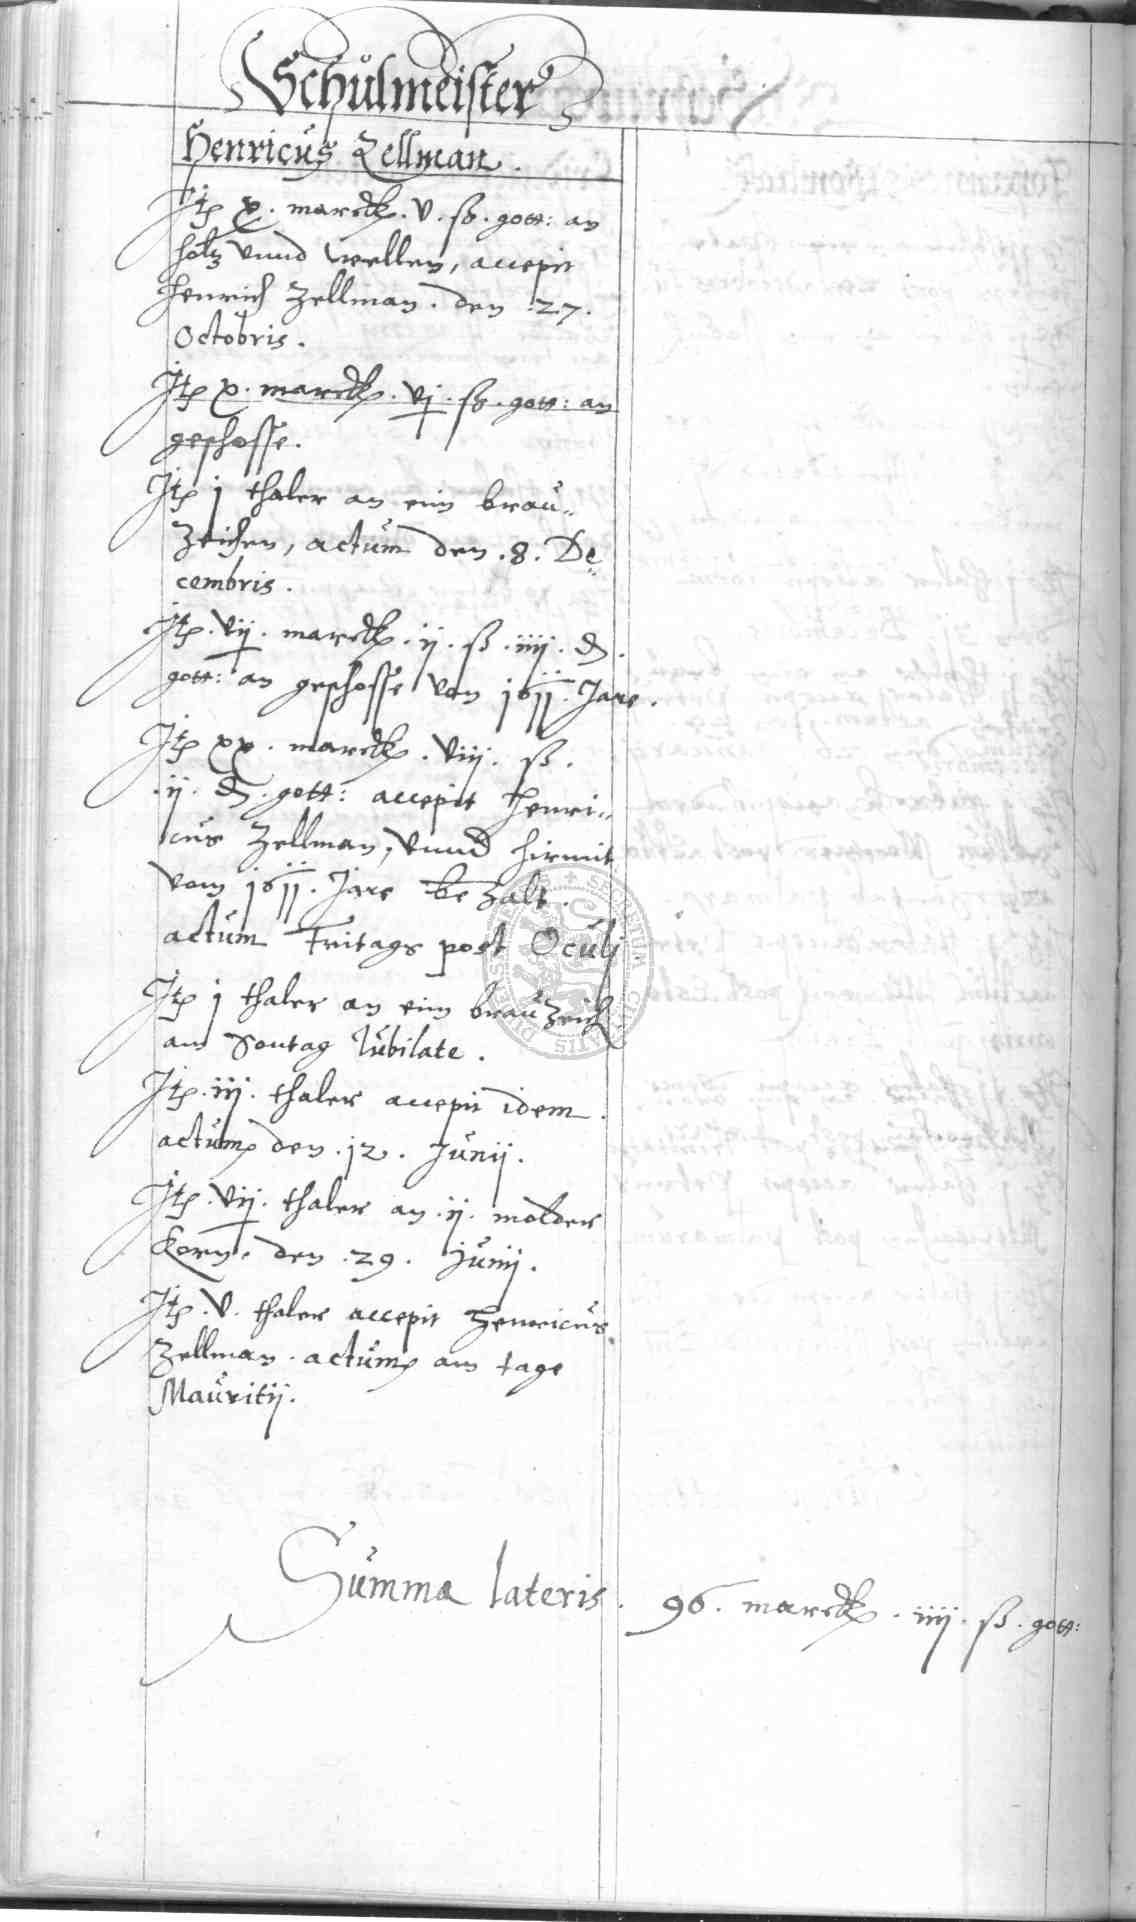 Schulmeister
Henricus Zellman.
Jtem x. marck. v. ß. gott: an
holtz vnnd wellen, accepit
Henrich Zellman. den 27.
Octobris.
Jtem x. marck. vj. ß. gott: an
geschosse.
Jtem j thaler an eim brau„
zeichen, actum den .8. De„
cembris.
Jtem. vij. marck. ij. ß. iiij. d.
gott: an geschosse von 1611. Jare.
Jtem xx. marck. viij. ß.
.ij. d. gott: accepit Henri„
cus Zellman, vnnd hirmit
vom 1611. Jare bezalt.
actum Fritags post Oculj
Jtem j thaler an eim brauzeich
am Sontag Jubilate.
Jtem. iij. thaler accepit idem.
actum den .12. Junij.
Jtem. vij. thaler an .ij. molder
Korn. den .29. Junij.
Jtem. v. thaler accepit Henricus
Zellman. actum am tage
Mauritij.
Summa lateris. 96. marck. iiij. ß. gott: